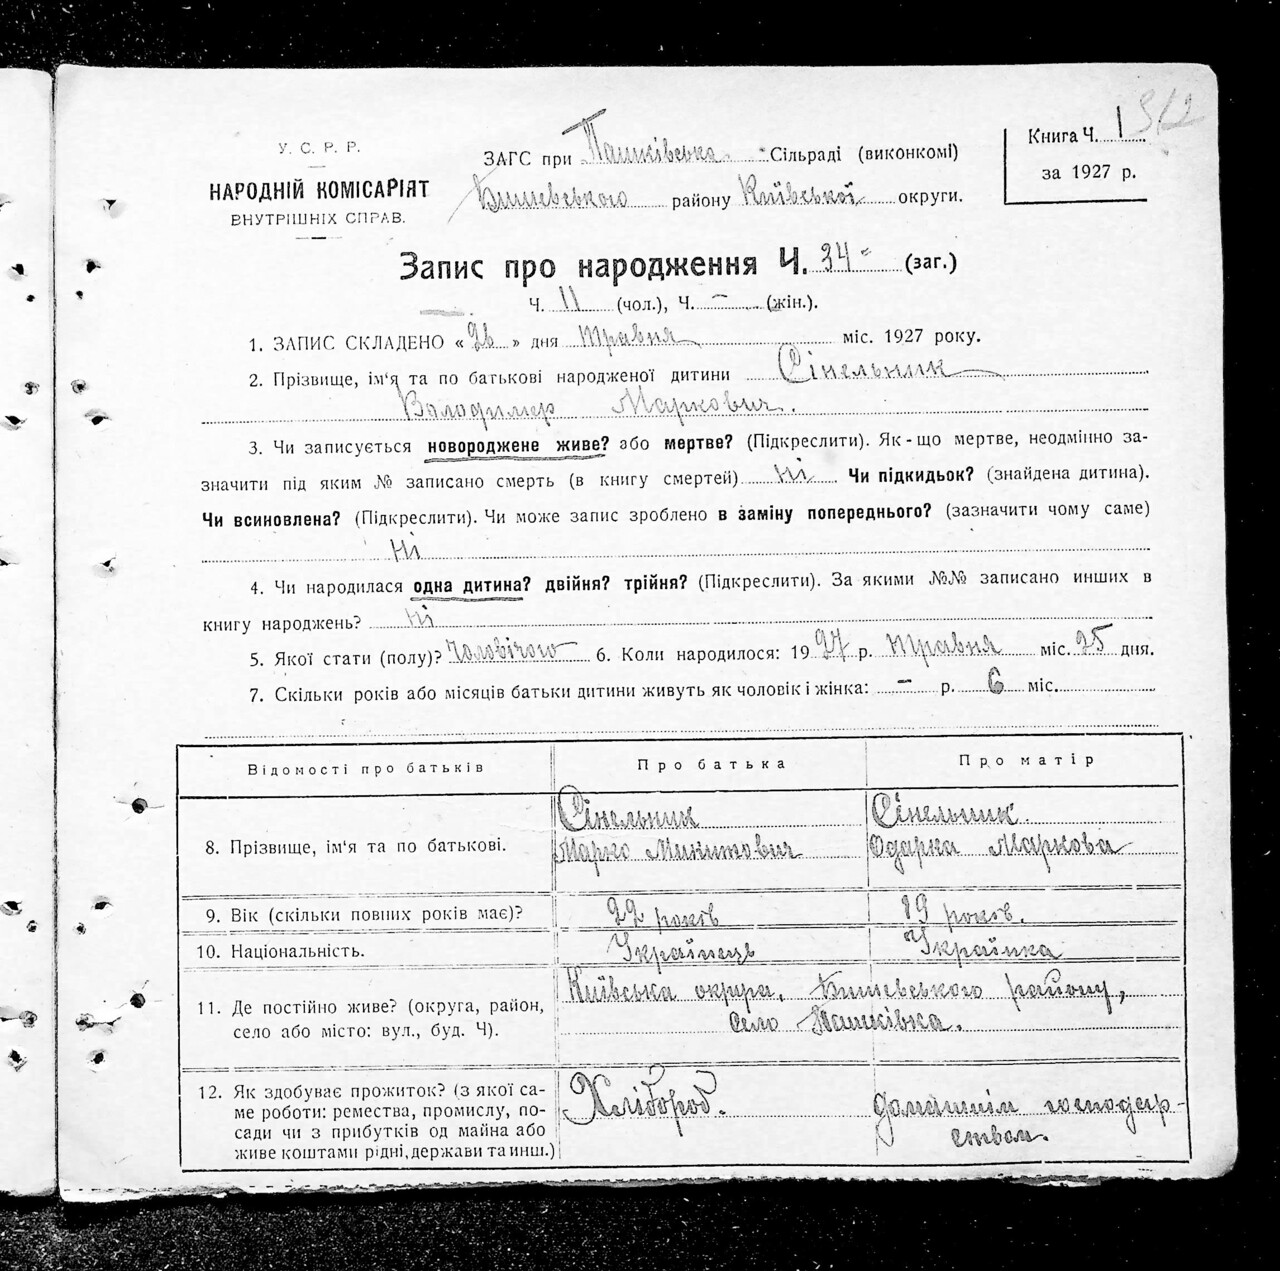 312
У. С. Р. Р.
НАРОДНІЙ КОМІСАРІЯТ
ВНУТРІШНІХ СПРАВ.
ЗАГС при Пашківська Сільраді (виконкомі)
Бишевського району Київської округи.
Книга Ч. 1
за 1927 р.
Запис про народження Ч. 34 - (заг.)
Ч. 11 (чол.), Ч. - (жін.).
1. ЗАПИС СКЛАДЕНО «26» дня травня міс. 1927 року.
2. Прізвище, ім'я та по батькові народженої дитини Сінельник
Володимер Маркович.
3. Чи записується новороджене живе? або мертве? (Підкреслити). Як-що мертве, неодмінно за-
значити під яким № записано смерть (в книгу смертей) ні Чи підкидьок? (знайдена дитина).
Чи всиновлена? (Підкреслити). Чи може запис зроблено в заміну попереднього? (зазначити чому саме)
ні
4. Чи народилася одна дитина? двійня? трійня? (Підкреслити). За якими №№ записано инших в
книгу народжень? ні
5. Якої стати (полу)? чоловічого 6. Коли народилося: 1927 р. травня міс. 25 дня.
7. Скільки років або місяців батьки дитини живуть як чоловік і жінка: - р. 6 міс.
Відомості про батьків Про батька Про матір
8. Прізвище, ім'я та по батькові. Сінельник Марко Микитович Сінельник. Одарка Маркова
9. Вік (скільки повних років має)? 22 років 19 років.
10. Національність. Українець Українка
11. Де постійно живе? (округа, район, Київська округа, Бишевського району,
село або місто: вул., буд. Ч). село Пашківка.
12. Як здобуває прожиток? (з якої са- Хлібороб. домашнім господар-
ме роботи: ремества, промислу, по- ством.
сади чи з прибутків од майна або
живе коштами рідні, держави та инш.)